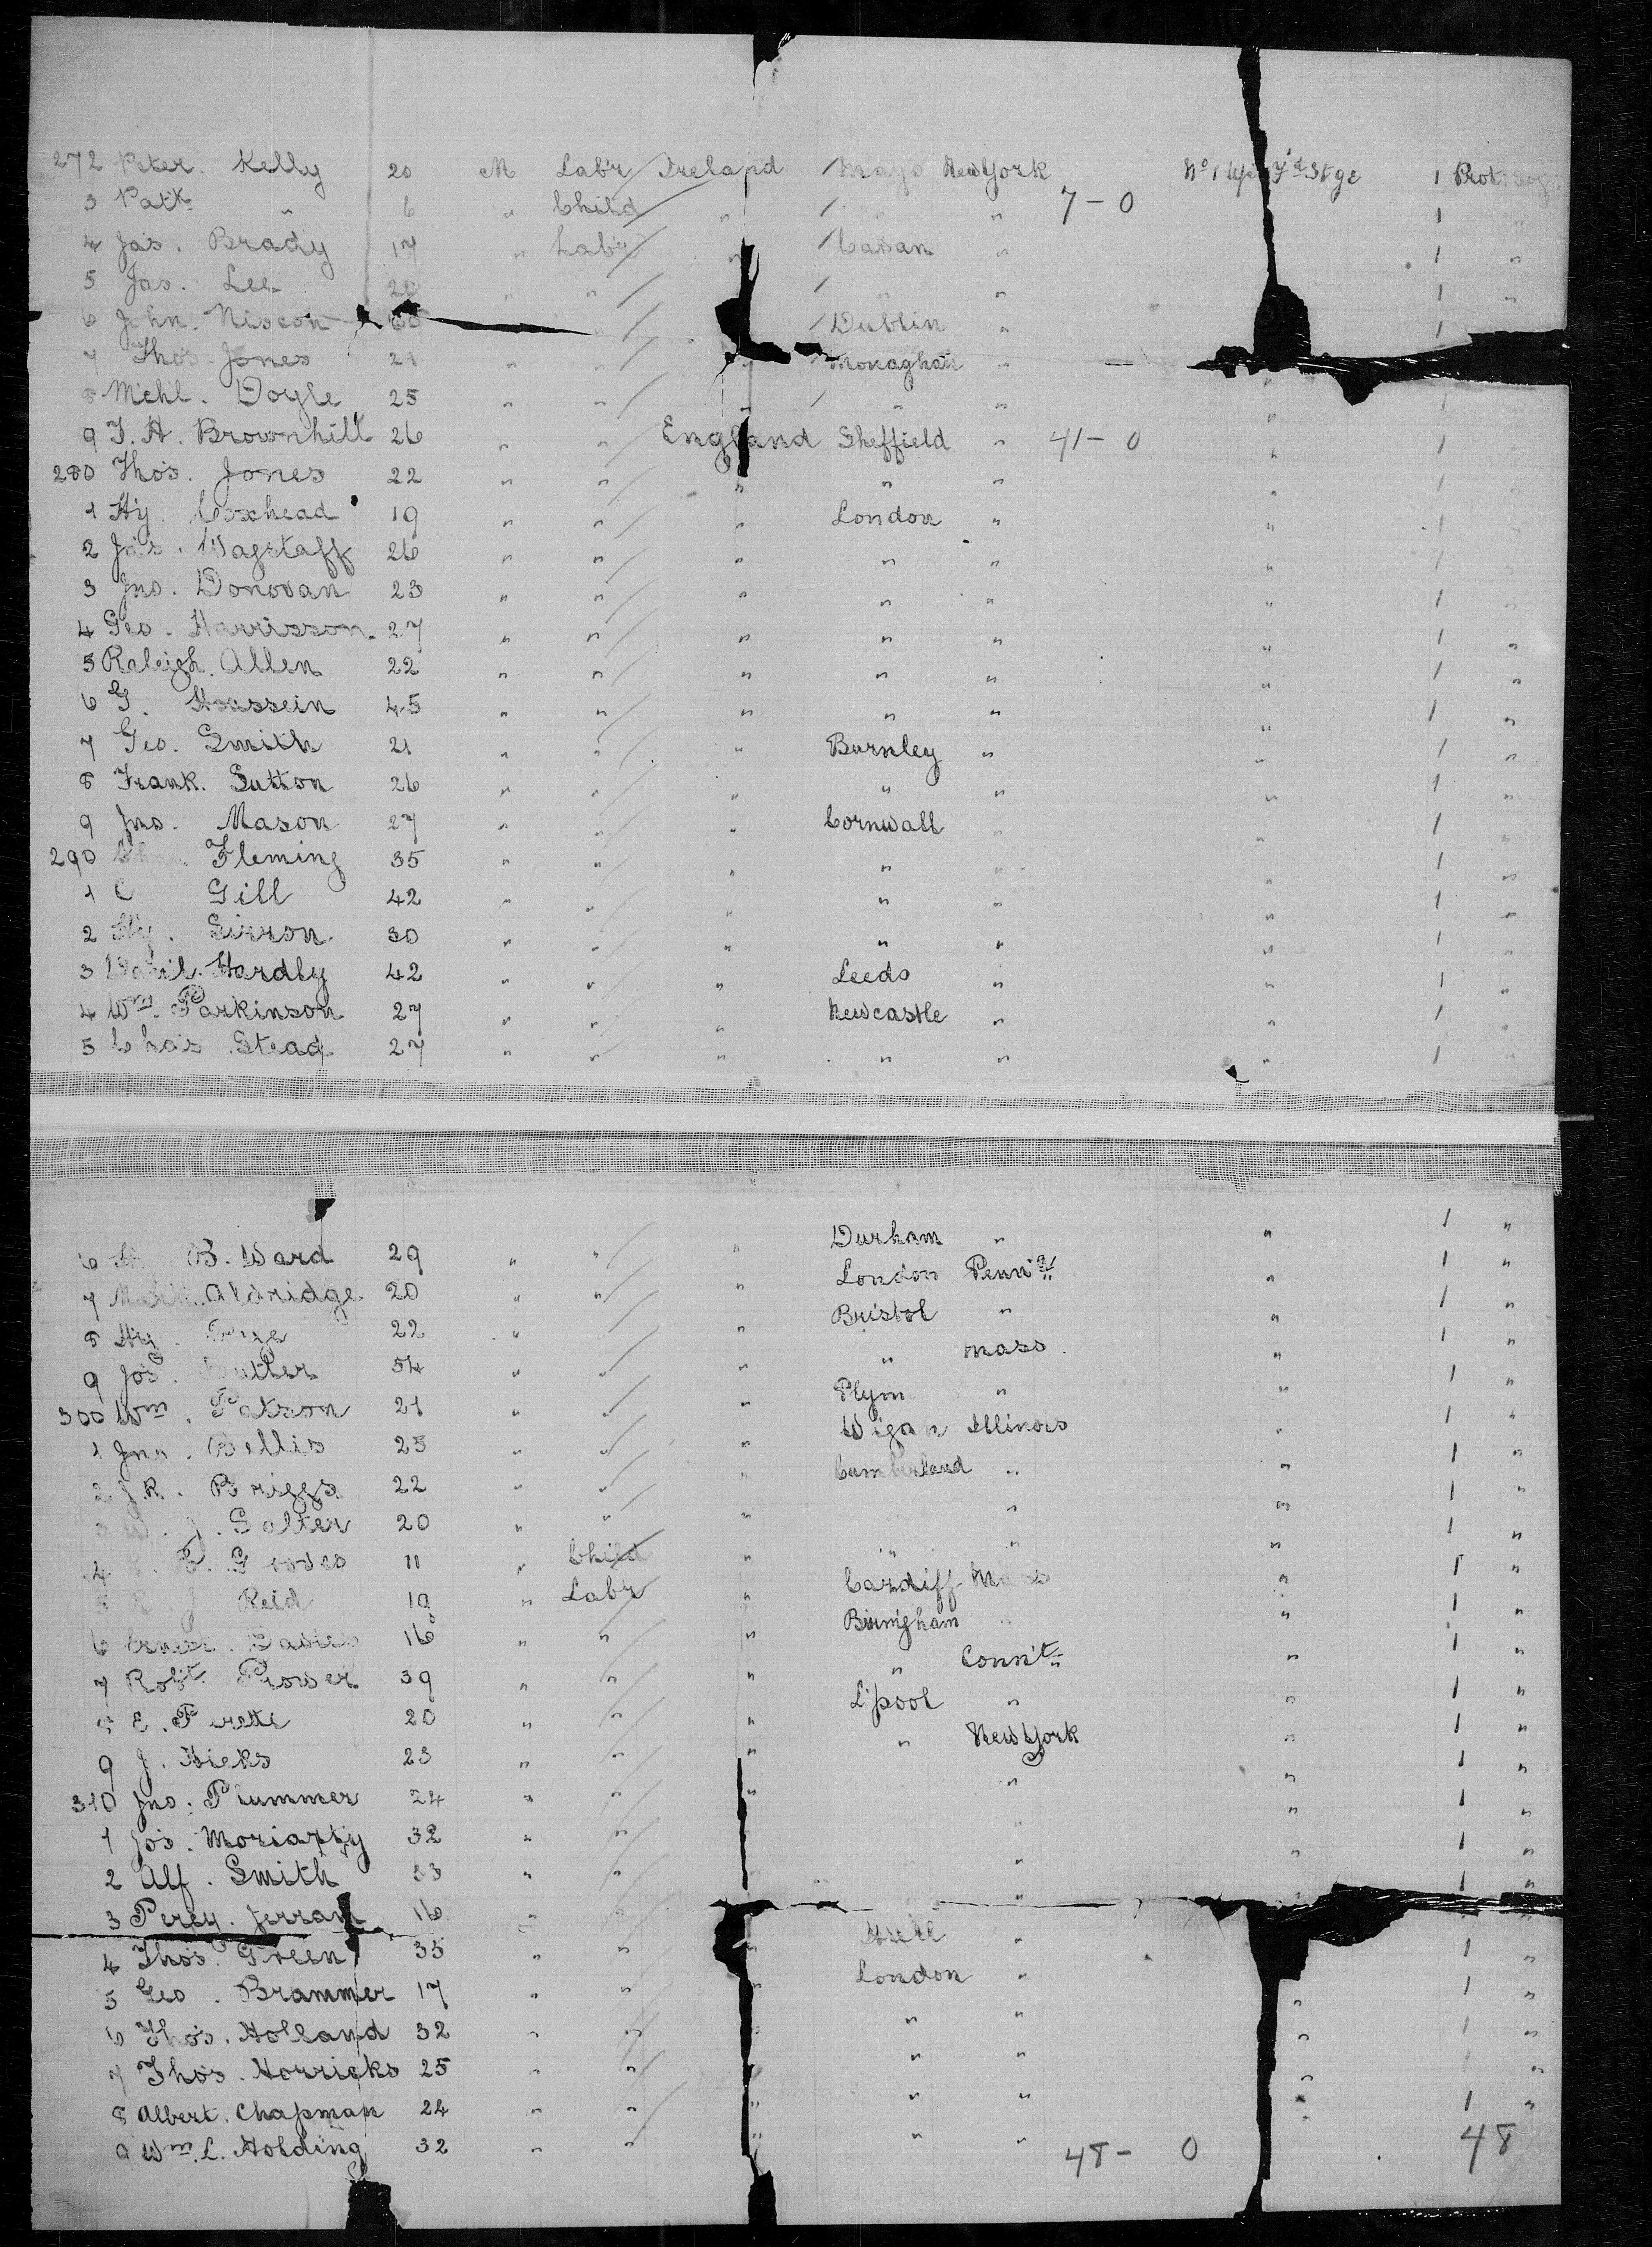 272 Peter. Kelly 20 M Lab'r Ireland Mayo New York 1 Prot:
3 Patk " 6 " Child " " " 7-0 1 "
4 Jas. Brady 17 " Lab'r " Cavan " 1 "
5 Jas. Lee " " " " 1 "
6 John. " Dublin " 1
7 Thos. Jones 21 " " " Monaghan "
8 Michl. Doyle 25 " " " " " " 1
9 J. H. Brownhill 26 " " England Sheffield " 41-0 " 1
280 Thos. Jones 22 " " " " " " 1 "
1 Hy. Coxhead 19 " " " London " " 1 "
2 Jas. Wagstaff 26 " " " " " " 1 "
3 Jno. Donovan 23 " " " " " " 1 "
4 Geo. Harrisson. 27 " " " " " " 1 "
5 Raleigh. Allen 22 " " " " " " 1 "
6 G. Houssein 45 " " " " " " 1 "
7 Geo. Smith 21 " " " Burnley " " 1 "
8 Frank. Sutton 26 " " " " " " 1 "
9 Jno. Mason 27 " " " Cornwall " " 1 "
290 Fleming 35 " " " " " " 1 "
1 C Gill 42 " " " " " " 1 "
2 Hy. Sirron 30 " " " " " " 1 "
3 Hardly 42 " " " Leeds " " 1 "
4 Wm. Parkinson 27 " " " Newcastle " " 1 "
5 Chas Stead 27 " " " " " " 1 "
6 B. Ward 29 " " " Durham " " 1 "
7 Aldridge 20 " " " London Penn'a " 1 "
8 Hy. 22 " " " Bristol " " 1 "
9 Jos. 54 " " " " Mass. " 1 "
300 Wm. Patson 21 " " " Plym " " 1 "
1 Jno. Bellis 25 " " " Wigan Illinois " 1 "
2 J. R. Briggs 22 " " " Cumberland " " 1 "
3 W. J. Salter 20 " " " " " 1 "
4 11 " Child " " " " 1 "
5 R. J. Reid 19 " Lab'r " Cardiff Mass " 1 "
6 Ernest. Davies 16 " " " Birmgham " " 1 "
7 Robt. Prowser 39 " " " " Conn't " 1 "
8 E. 20 " " " L'pool " " 1 "
9 J. Hicks 23 " " " " New York " 1 "
310 Jno. Plummer 24 " " " " " 1 "
1 Jos. Moriarty 32 " " " 1 "
2 Alf. Smith 33 " " " " 1 "
3 Percy. Jerram 16 " " " "
4 Thos. Green 35 " " " Hull " 1 "
5 Geo. Brammer 17 " " " London " 1 "
6 Thos. Holland 32 " " " " " " 1 "
7 Thos. Horricks 25 " " " " " " 1 "
8 Albert. Chapman 24 " " " " " " 1 "
9 Wm. L. Holding 32 " " " " " 48- 0 48